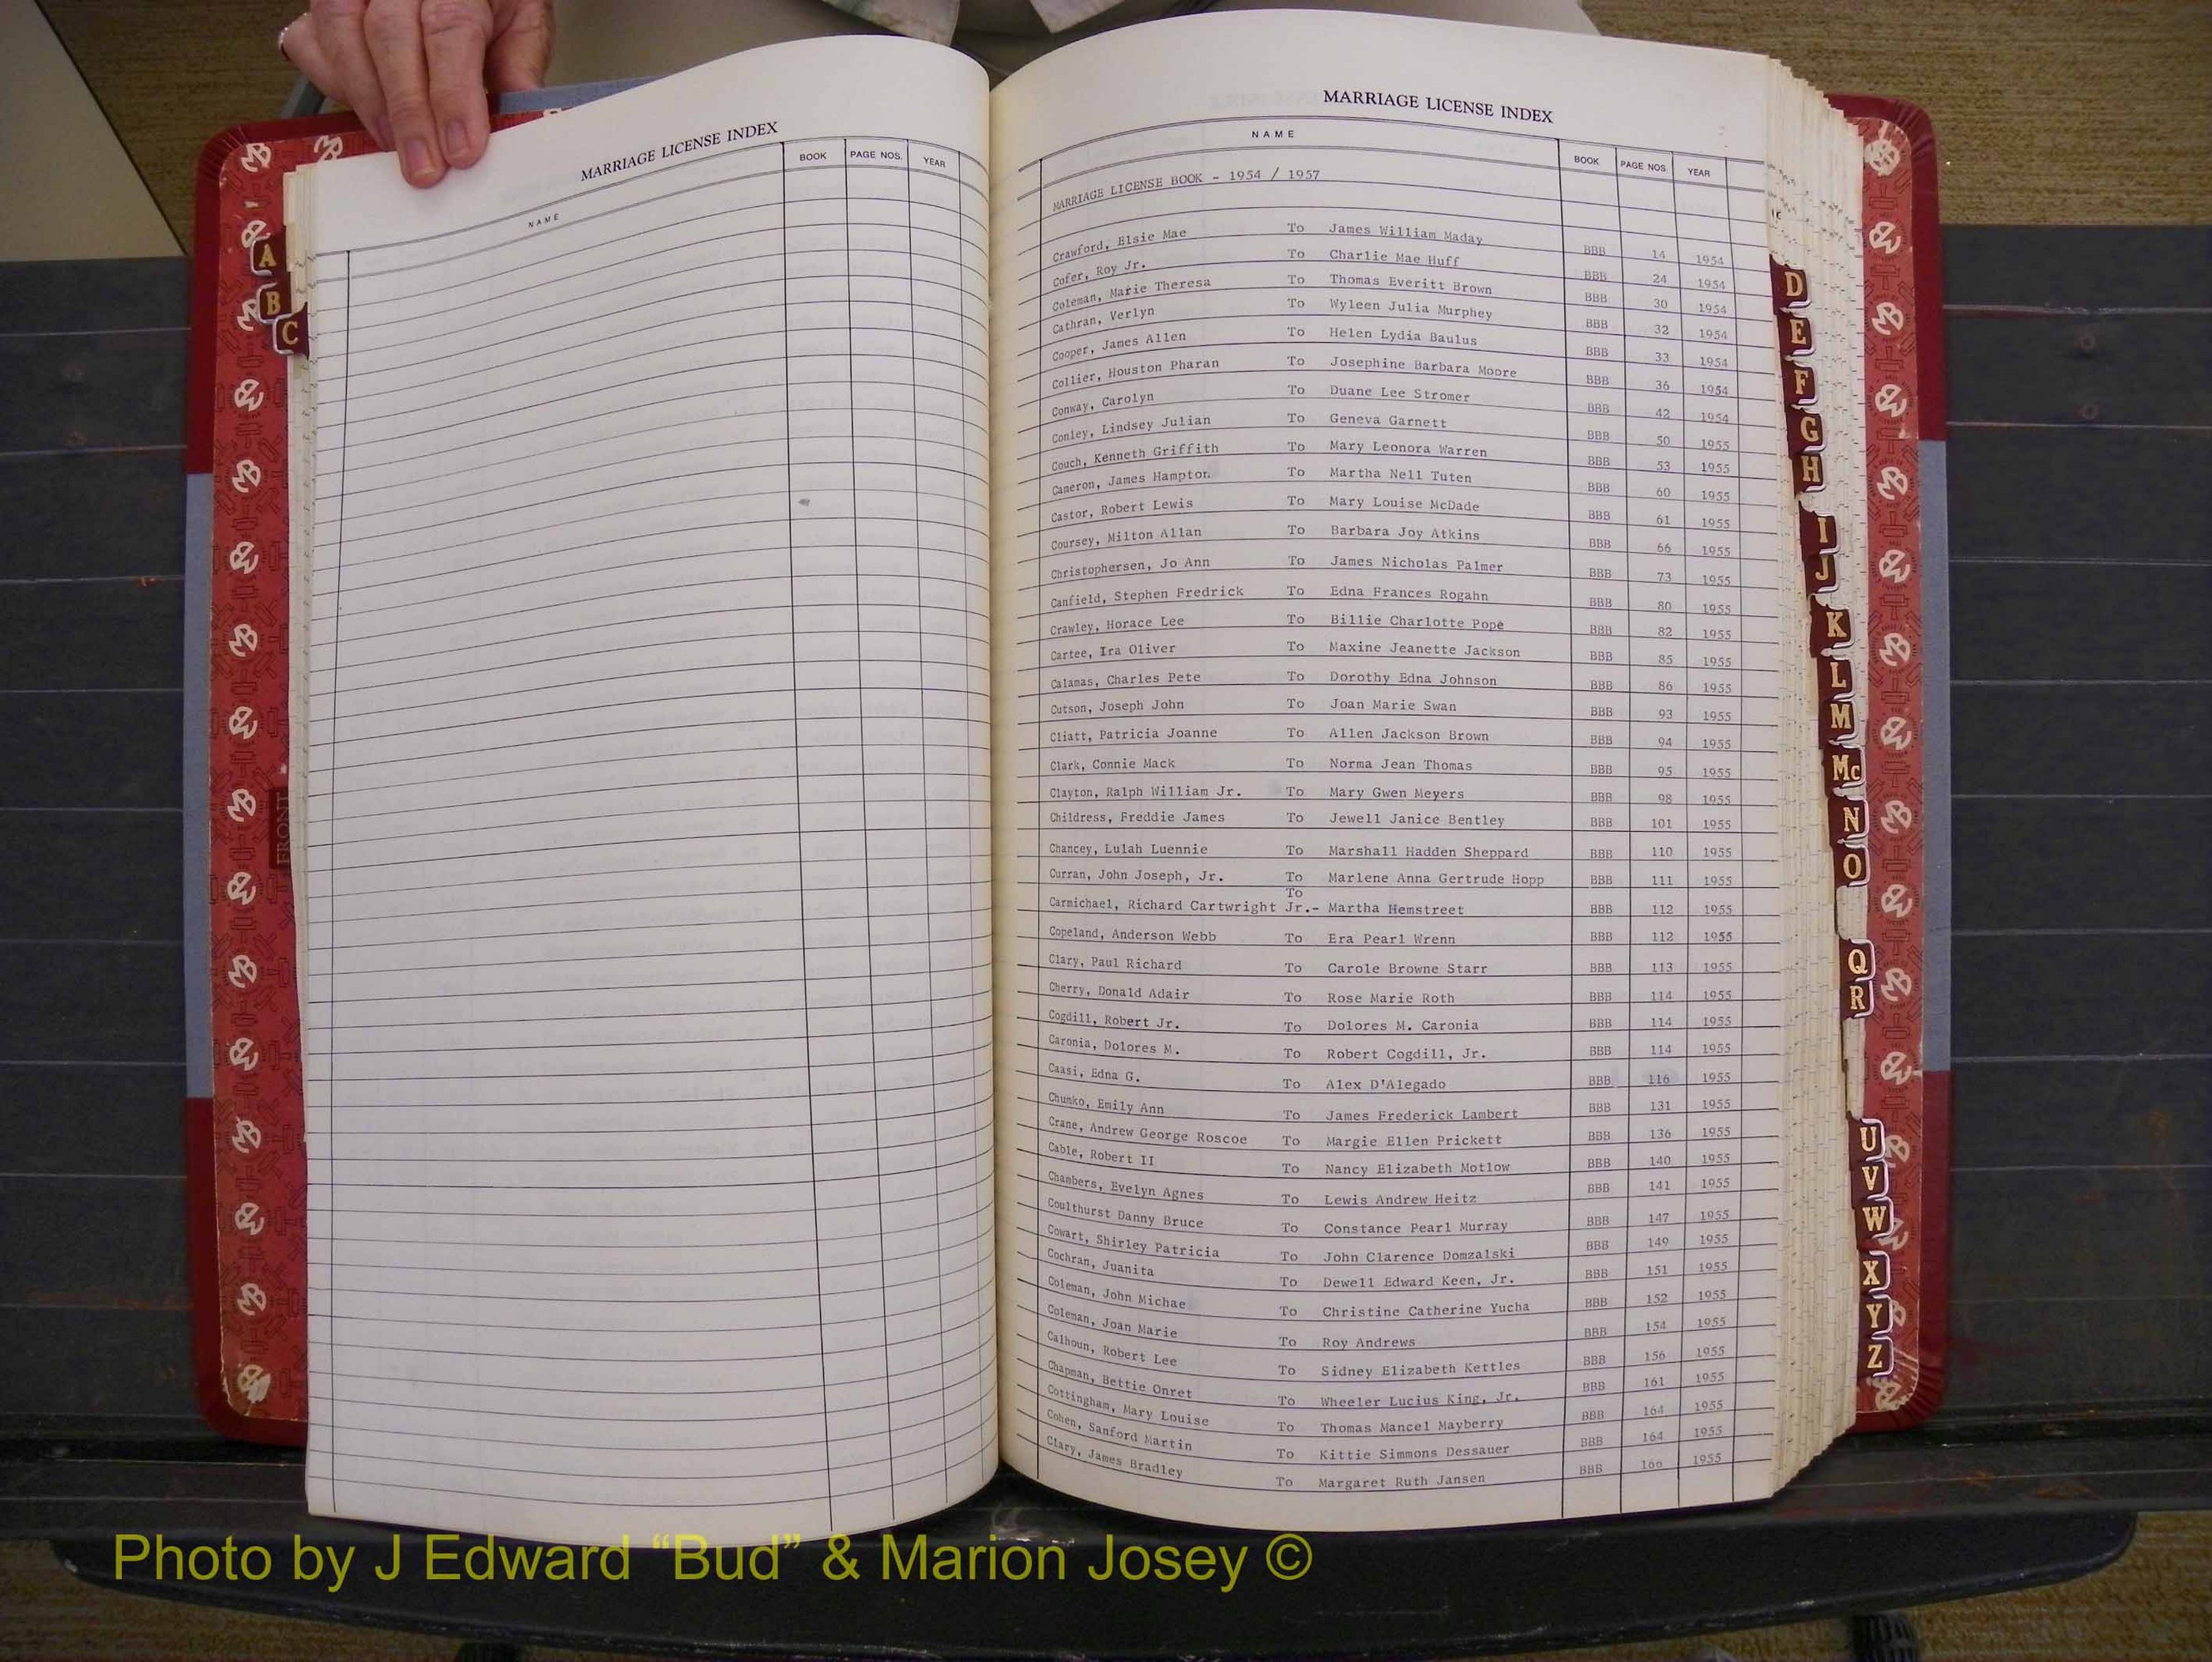 MARRIAGE LICENSE INDEX
NAME BOOK PAGE NOS. YEAR
A
B
C
FRONT
MARRIAGE LICENSE INDEX
NAME BOOK PAGE NOS. YEAR
MARRIAGE LICENSE BOOK - 1954 / 1957
Crawford, Elsie Mae To James William Maday BBB 14 1954
Cofer, Roy Jr. To Charlie Mae Huff BBB 24 1954
Coleman, Marie Theresa To Thomas Everitt Brown BBB 30 1954
Cathran, Verlyn To Wyleen Julia Murphey BBB 32 1954
Cooper, James Allen To Helen Lydia Baulus BBB 33 1954
Collier, Houston Pharan To Josephine Barbara Moore BBB 36 1954
Conway, Carolyn To Duane Lee Stromer BBB 42 1954
Conley, Lindsey Julian To Geneva Garnett BBB 50 1955
Couch, Kenneth Griffith To Mary Leonora Warren BBB 53 1955
Cameron, James Hampton To Martha Nell Tuten BBB 60 1955
Castor, Robert Lewis To Mary Louise McDade BBB 61 1955
Coursey, Milton Allan To Barbara Joy Atkins BBB 66 1955
Christophersen, Jo Ann To James Nicholas Palmer BBB 73 1955
Canfield, Stephen Fredrick To Edna Frances Rogahn BBB 80 1955
Crawley, Horace Lee To Billie Charlotte Pope BBB 82 1955
Cartee, Ira Oliver To Maxine Jeanette Jackson BBB 85 1955
Calamas, Charles Pete To Dorothy Edna Johnson BBB 86 1955
Cutson, Joseph John To Joan Marie Swan BBB 93 1955
Cliatt, Patricia Joanne To Allen Jackson Brown BBB 94 1955
Clark, Connie Mack To Norma Jean Thomas BBB 95 1955
Clayton, Ralph William Jr. To Mary Gwen Meyers BBB 98 1955
Childress, Freddie James To Jewell Janice Bentley BBB 101 1955
Chancey, Lulah Luennie To Marshall Hadden Sheppard BBB 110 1955
Curran, John Joseph, Jr. To Marlene Anna Gertrude Hopp BBB 111 1955
To
Carmichael, Richard Cartwright Jr.- Martha Hemstreet BBB 112 1955
Copeland, Anderson Webb To Era Pearl Wrenn BBB 112 1955
Clary, Paul Richard To Carole Browne Starr BBB 113 1955
Cherry, Donald Adair To Rose Marie Roth BBB 114 1955
Cogdill, Robert Jr. To Dolores M. Caronia BBB 114 1955
Caronia, Dolores M. To Robert Cogdill, Jr. BBB 114 1955
Caasi, Edna G. To Alex D'Alegado BBB 116 1955
Chunko, Emily Ann To James Frederick Lambert BBB 131 1955
Crane, Andrew George Roscoe To Margie Ellen Prickett BBB 136 1955
Cable, Robert II To Nancy Elizabeth Motlow BBB 140 1955
Chambers, Evelyn Agnes To Lewis Andrew Heitz BBB 141 1955
Coulthurst Danny Bruce To Constance Pearl Murray BBB 147 1955
Cowart, Shirley Patricia To John Clarence Domzalski BBB 149 1955
Cochran, Juanita To Dewell Edward Keen, Jr. BBB 151 1955
Coleman, John Michae To Christine Catherine Yucha BBB 152 1955
Coleman, Joan Marie To Roy Andrews BBB 154 1955
Calhoun, Robert Lee To Sidney Elizabeth Kettles BBB 156 1955
Chapman, Bettie Onret To Wheeler Lucius King, Jr. BBB 161 1955
Cottingham, Mary Louise To Thomas Mancel Mayberry BBB 164 1955
Cohen, Sanford Martin To Kittie Simmons Dessauer BBB 164 1955
Clary, James Bradley To Margaret Ruth Jansen BBB 166 1955
D
E
F
G
H
I
J
K
L
M
Mc
N
O
Q
R
U
V
W
X
Y
Z
Photo by J Edward “Bud” & Marion Josey ©